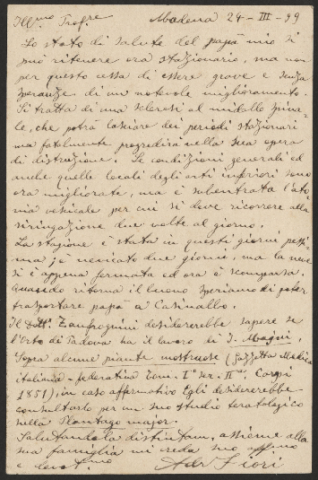 Ill.mo Prof.re Modena 24-III-99
Lo stato di salute del papà mio si
può ritenere ora stazionario, ma non
per questo cessa di essere grave e senza
speranze di un notevole miglioramento.
Si tratta di una sclerosi al midollo spina-
le, che potrà lasciare dei periodi stazionari
ma fatalmente progredirà nella sua opera
di distruzione. Le condizioni generali ed
anche quelle locali degli arti inferiori sono
ora migliorate, ma è subentrata l'ato-
nia vescicale per cui si deve ricorrere alla
siringazione due volte al giorno.
La stagione è stata in questi giorni pessi-
ma; è nevicato due giorni, ma la neve
si è appena fermata ed ora è scomparsa.
Quando ritorna il buono speriamo di poter
trasportare papà a Casinalbo.
Il Dott. Zanfrognini desidererebbe sapere se
l'Orto di Padova ha il lavoro di I. Magni,
Sopra alcune piante mostruose (Gazzetta Medica
italiana-federativa Tom. I° ser. II.a, Corpi
1851), in caso affermativo Egli desidererebbe
consultarlo per un suo studio teratologico
sulla Plantago major.
Salutandola distintam, assieme alla
sua famiglia mi creda suo affmo
e devot.mo Adr. Fiori